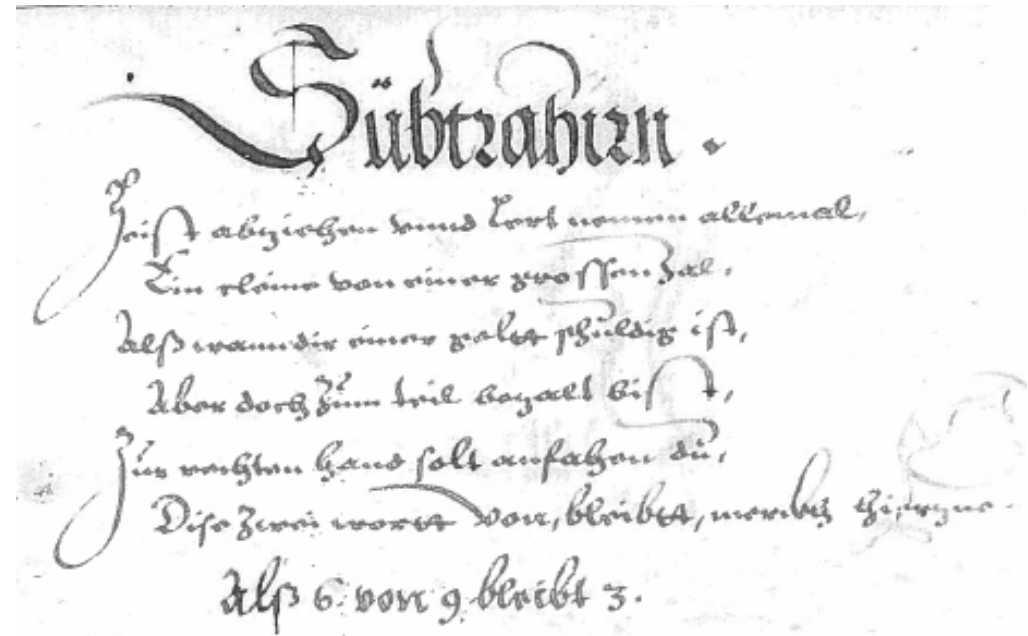 Sübtrahirn.
Heist abziehen vnnd lert nemen allemal,
Ein cleine von einer grossen Zal,
Alß wann dir einer geltt schuldig ist,
Aber doch Züm teil bezalt bist,
Zur rechten hand solt anfahen dü,
Dise Zwei wortt von, bleibtt, merckh hierzue.
Alß 6 von 9 bleibt 3.